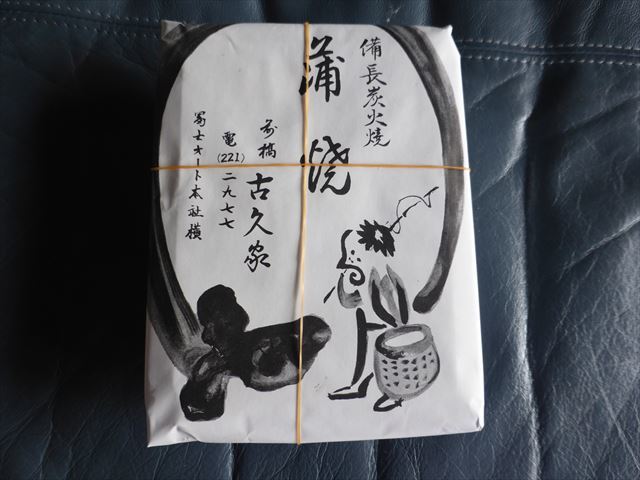 備長炭火焼
蒲焼
前橋 古久家
電(221)二九七七
冨士オート本社横